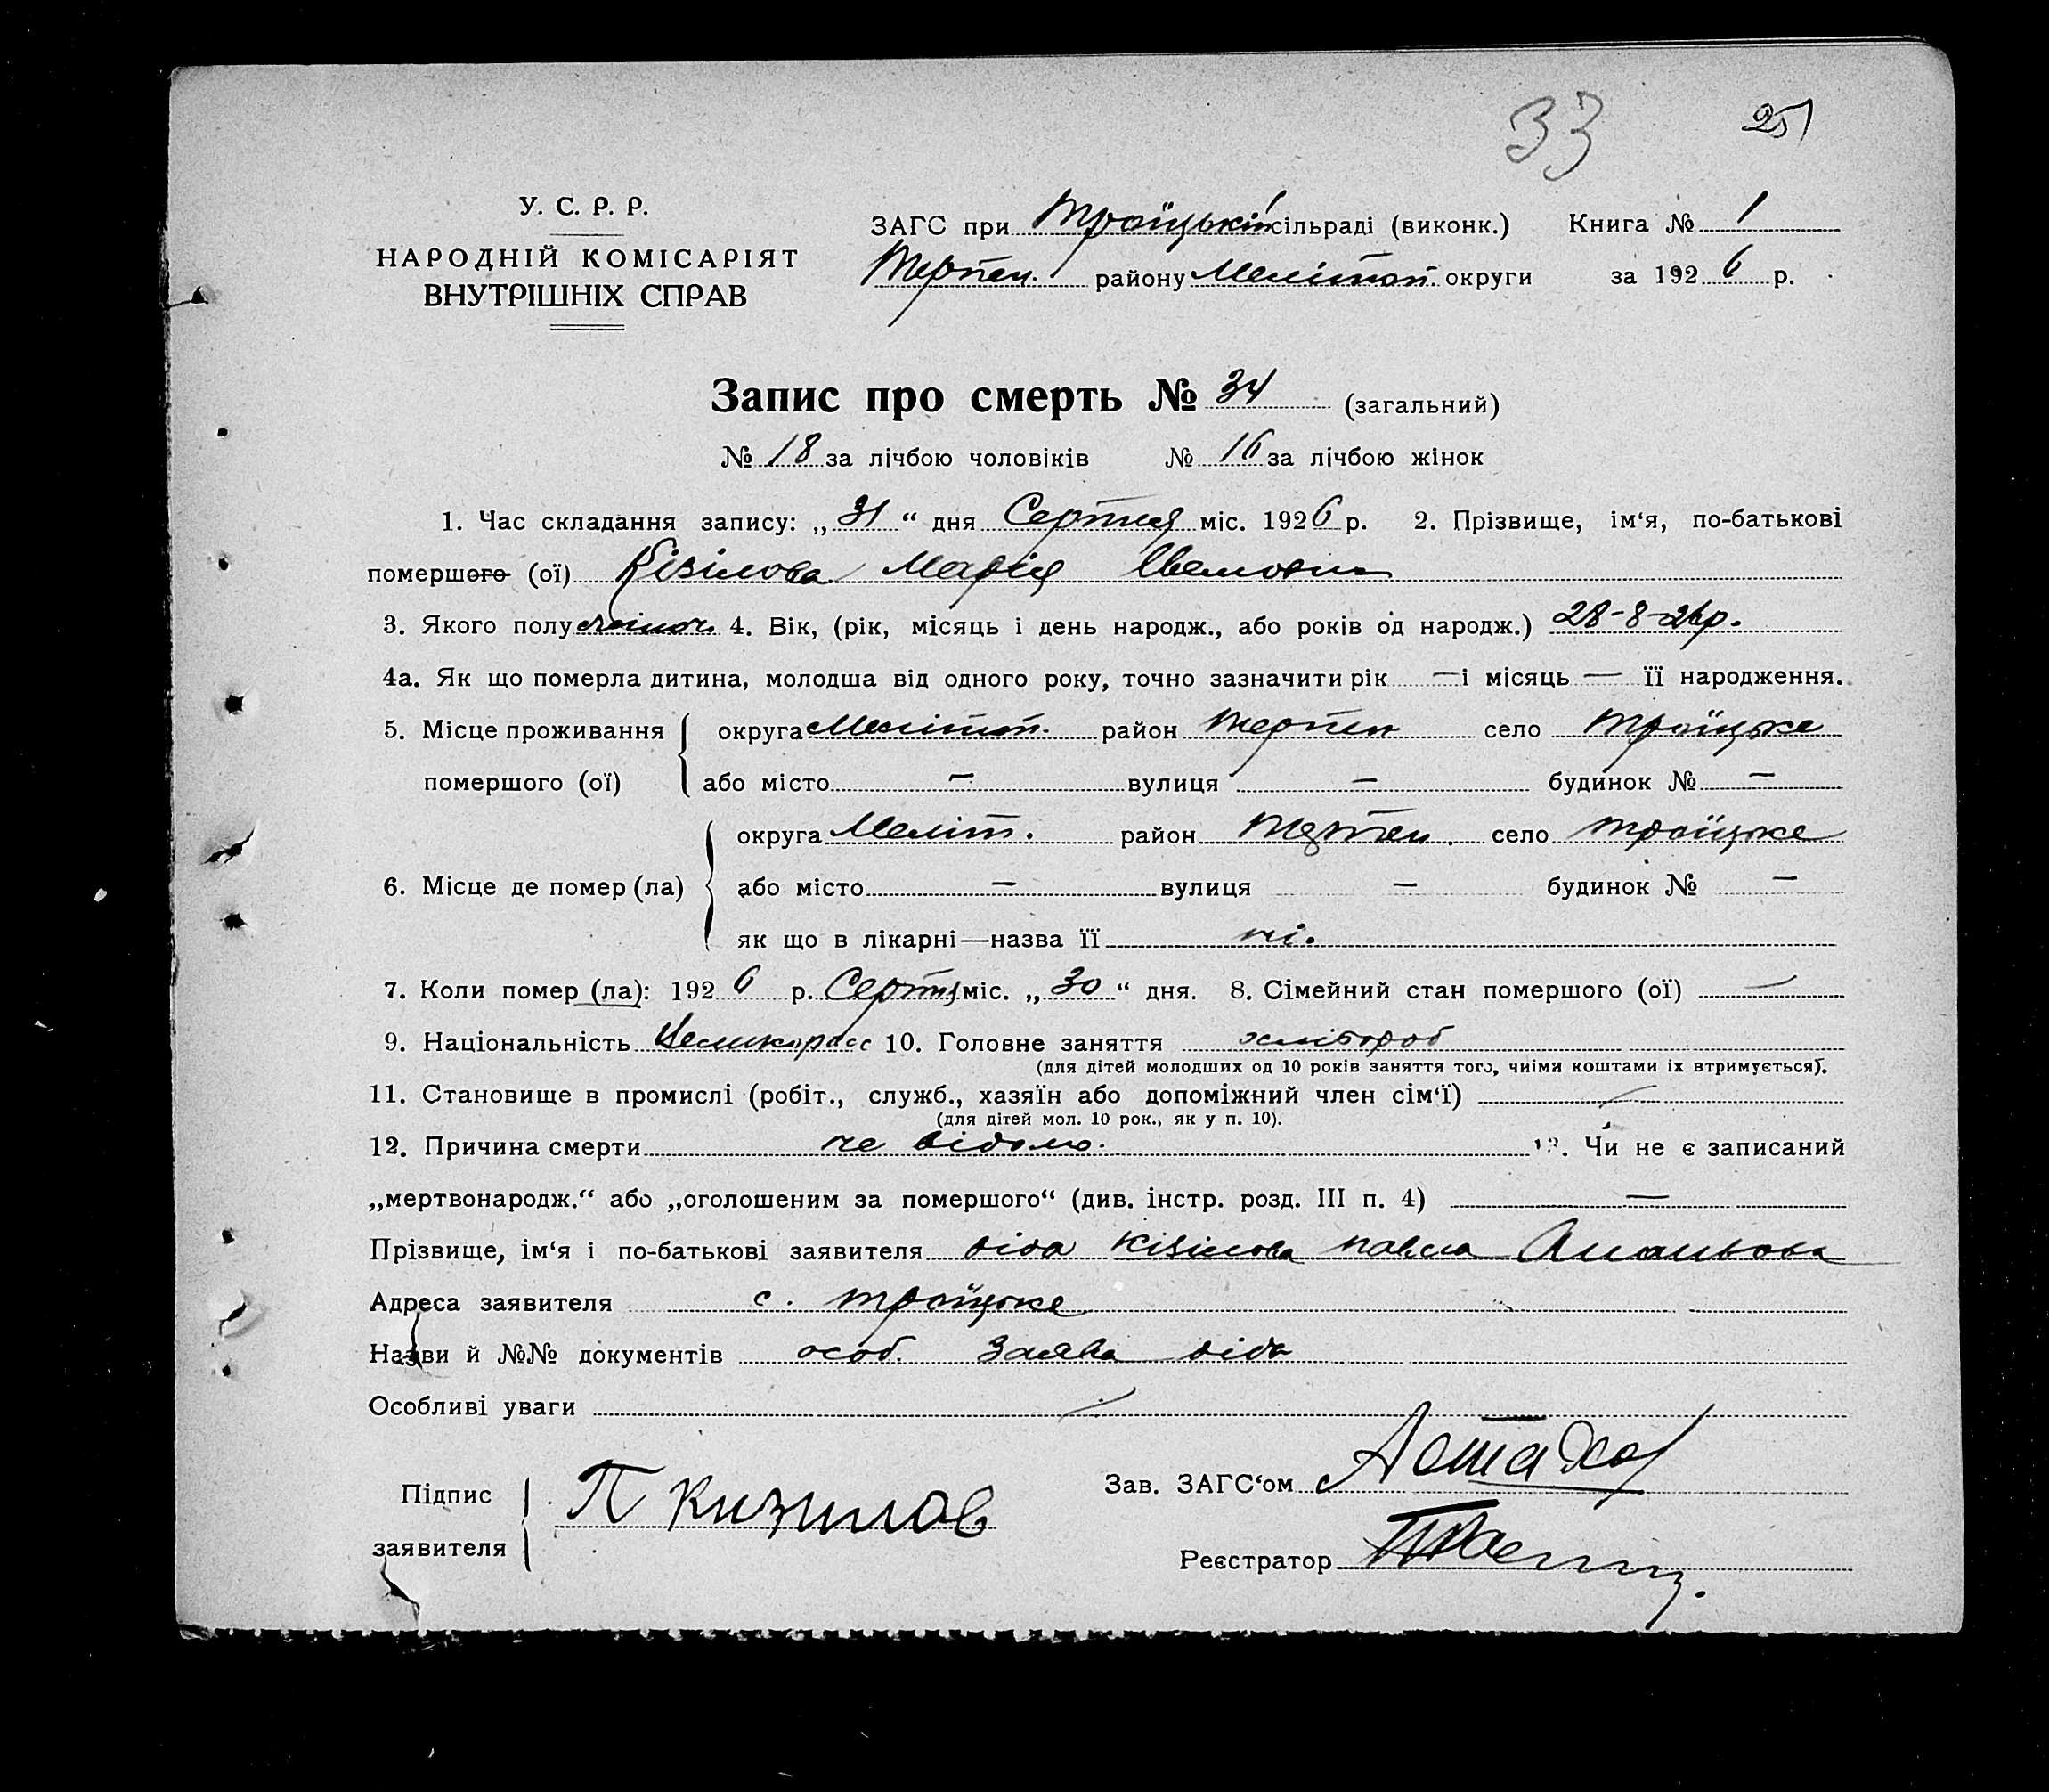 33 251
У. С. Р. Р.
НАРОДНІЙ КОМІСАРІЯТ
ВНУТРІШНІХ СПРАВ
ЗАГС при Троїцькій сільраді (виконк.) Книга № 1
Терпен. району Мелітоп. округи за 1926 р.
Запис про смерть № 34 (загальний)
№ 18 за лічбою чоловіків № 16 за лічбою жінок
1. Час складання запису: „31“ дня Серпня міс. 1926 р. 2. Прізвище, ім‘я, по-батькові
помершого (ої) Кізілова Марія Івановна
3. Якого полу жіноч. 4. Вік, (рік, місяць і день народж., або років од народж.) 28-8-26р.
4а. Як що померла дитина, молодша від одного року, точно зазначити рік — і місяць — її народження.
5. Місце проживання округа Мелітоп. район Терпен село Троїцьке
помершого (ої) або місто — вулиця — будинок № —
округа Меліт. район Терпен. село Троїцьке
6. Місце де помер (ла) або місто — вулиця — будинок № —
як що в лікарні—назва її ні.
7. Коли помер (ла): 1926 р. Серпня міс. „30“ дня. 8. Сімейний стан помершого (ої) —
9. Національність Великорос 10. Головне заняття хлібороб
(для дітей молодших од 10 років заняття того, чиїми коштами їх втримується).
11. Становище в промислі (робіт., служб., хазяїн або допоміжний член сім‘ї) —
(для дітей мол. 10 рок., як у п. 10).
12. Причина смерти не відомо. 13. Чи не є записаний
„мертвонародж.“ або „оголошеним за помершого“ (див. інстр. розд. III п. 4) —
Прізвище, ім‘я і по-батькові заявителя діда Кізілова Павла Ананьова
Адреса заявителя с. Троїцьке
Назви й №№ документів особ. заява діда
Особливі уваги —
Підпис заявителя П Кизилов
Зав. ЗАГС‘ом
Реєстратор